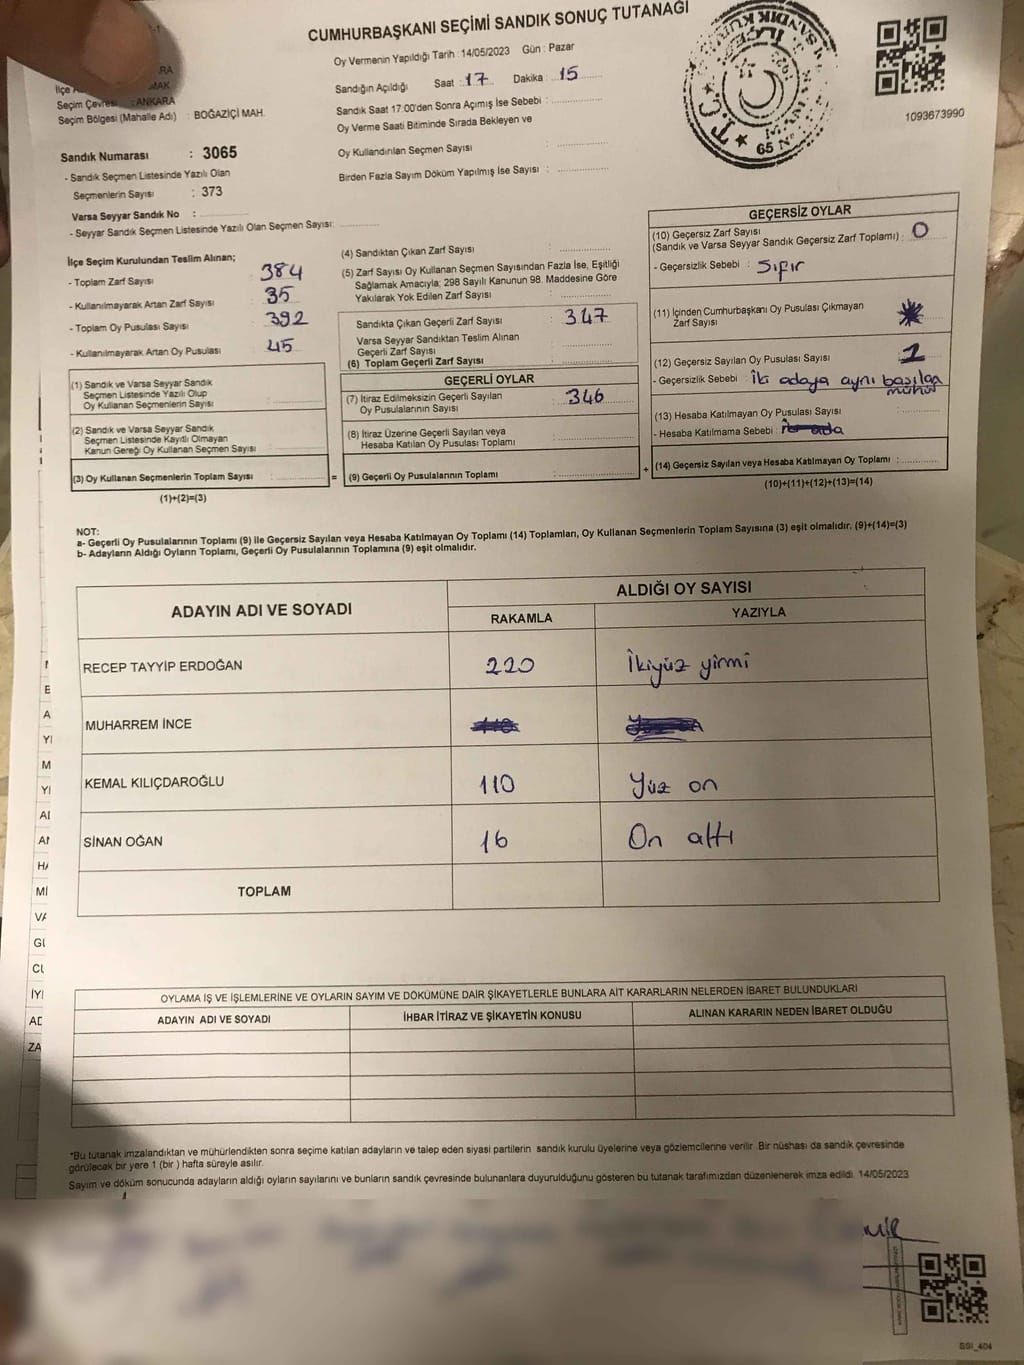 CUMHURBAŞKANI SEÇİMİ SANDIK SONUÇ TUTANAĞI
Oy Vermenin Yapıldığı Tarih : 14/05/2023 Gün : Pazar
Sandığın Açıldığı Saat : 17 Dakika : 15
Sandık Saat 17:00'den Sonra Açımış İse Sebebi :
Oy Verme Saati Bitiminde Sırada Bekleyen ve
Oy Kullandırılan Seçmen Sayısı :
Birden Fazla Sayım Döküm Yapılmış İse Sayısı :
RA
İlçe A MAK
Seçim Çevresi : ANKARA
Seçim Bölgesi (Mahalle Adı) : BOĞAZİÇİ MAH.
Sandık Numarası : 3065
- Sandık Seçmen Listesinde Yazılı Olan
Seçmenlerin Sayısı : 373
Varsa Seyyar Sandık No :
- Seyyar Sandık Seçmen Listesinde Yazılı Olan Seçmen Sayısı:
T.C.
65 N
1093673990
İlçe Seçim Kurulundan Teslim Alınan;
- Toplam Zarf Sayısı : 384
- Kullanılmayarak Artan Zarf Sayısı : 35
- Toplam Oy Pusulası Sayısı : 392
- Kullanılmayarak Artan Oy Pusulası : 45
(1) Sandık ve Varsa Seyyar Sandık
Seçmen Listesinde Yazılı Olup
Oy Kullanan Seçmenlerin Sayısı :
(2) Sandık ve Varsa Seyyar Sandık
Seçmen Listesinde Kayıtlı Olmayan
Kanun Gereği Oy Kullanan Seçmen Sayısı :
(3) Oy Kullanan Seçmenlerin Toplam Sayısı : =
(1)+(2)=(3)
(4) Sandıktan Çıkan Zarf Sayısı :
(5) Zarf Sayısı Oy Kullanan Seçmen Sayısından Fazla İse, Eşitliği
Sağlamak Amacıyla; 298 Sayılı Kanunun 98. Maddesine Göre
Yakılarak Yok Edilen Zarf Sayısı :
Sandıkta Çıkan Geçerli Zarf Sayısı : 347
Varsa Seyyar Sandıktan Teslim Alınan
Geçerli Zarf Sayısı :
(6) Toplam Geçerli Zarf Sayısı :
GEÇERLİ OYLAR
(7) İtiraz Edilmeksizin Geçerli Sayılan
Oy Pusulalarının Sayısı : 346
(8) İtiraz Üzerine Geçerli Sayılan veya
Hesaba Katılan Oy Pusulası Toplamı :
(9) Geçerli Oy Pusulalarının Toplamı : +
GEÇERSİZ OYLAR
(10) Geçersiz Zarf Sayısı
(Sandık ve Varsa Seyyar Sandık Geçersiz Zarf Toplamı) : 0
- Geçersizlik Sebebi : Sıfır
(11) İçinden Cumhurbaşkanı Oy Pusulası Çıkmayan
Zarf Sayısı :
(12) Geçersiz Sayılan Oy Pusulası Sayısı : 1
- Geçersizlik Sebebi : İki adaya aynı basılga
mühür
(13) Hesaba Katılmayan Oy Pusulası Sayısı :
- Hesaba Katılmama Sebebi :
(14) Geçersiz Sayılan veya Hesaba Katılmayan Oy Toplamı :
(10)+(11)+(12)+(13)=(14)
NOT:
a- Geçerli Oy Pusulalarının Toplamı (9) ile Geçersiz Sayılan veya Hesaba Katılmayan Oy Toplamı (14) Toplamları, Oy Kullanan Seçmenlerin Toplam Sayısına (3) eşit olmalıdır. (9)+(14)=(3)
b- Adayların Aldığı Oyların Toplamı, Geçerli Oy Pusulalarının Toplamına (9) eşit olmalıdır.
ADAYIN ADI VE SOYADI ALDIĞI OY SAYISI
RAKAMLA YAZIYLA
RECEP TAYYİP ERDOĞAN 220 İkiyüz yirmi
MUHARREM İNCE
KEMAL KILIÇDAROĞLU 110 Yüz on
SİNAN OĞAN 16 On altı
TOPLAM
OYLAMA İŞ VE İŞLEMLERİNE VE OYLARIN SAYIM VE DÖKÜMÜNE DAİR ŞİKAYETLERLE BUNLARA AİT KARARLARIN NELERDEN İBARET BULUNDUKLARI
ADAYIN ADI VE SOYADI İHBAR İTİRAZ VE ŞİKAYETİN KONUSU ALINAN KARARIN NEDEN İBARET OLDUĞU
*Bu tutanak imzalandıktan ve mühürlendikten sonra seçime katılan adayların ve talep eden siyasi partilerin sandık kurulu üyelerine veya gözlemcilerine verilir. Bir nüshası da sandık çevresinde
görülecek bir yere 1 (bir ) hafta süreyle asılır.
Sayım ve döküm sonucunda adayların aldığı oyların sayılarını ve bunların sandık çevresinde bulunanlara duyurulduğunu gösteren bu tutanak tarafımızdan düzenlenerek imza edildi. 14/05/2023
SSI_404